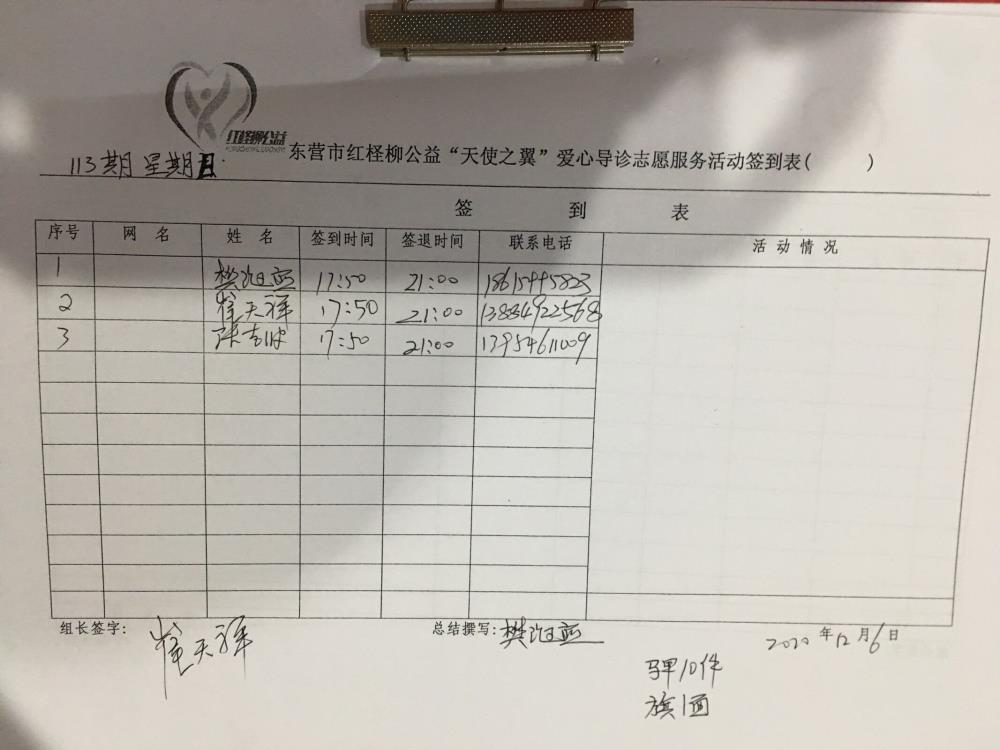 红柽柳公益
东营市红柽柳公益“天使之翼”爱心导诊志愿服务活动签到表( )
113期 星期日
签 到 表
序号 网 名 姓 名 签到时间 签退时间 联系电话 活 动 情 况
1 樊 17:50 21:00 18615445823
2 崔天祥 17:50 21:00 13884922568
3 张吉 17:50 21:00 13954611009
组长签字: 崔天祥 总结撰写: 樊 2020 年 12 月 6 日
马甲10件
旗1面